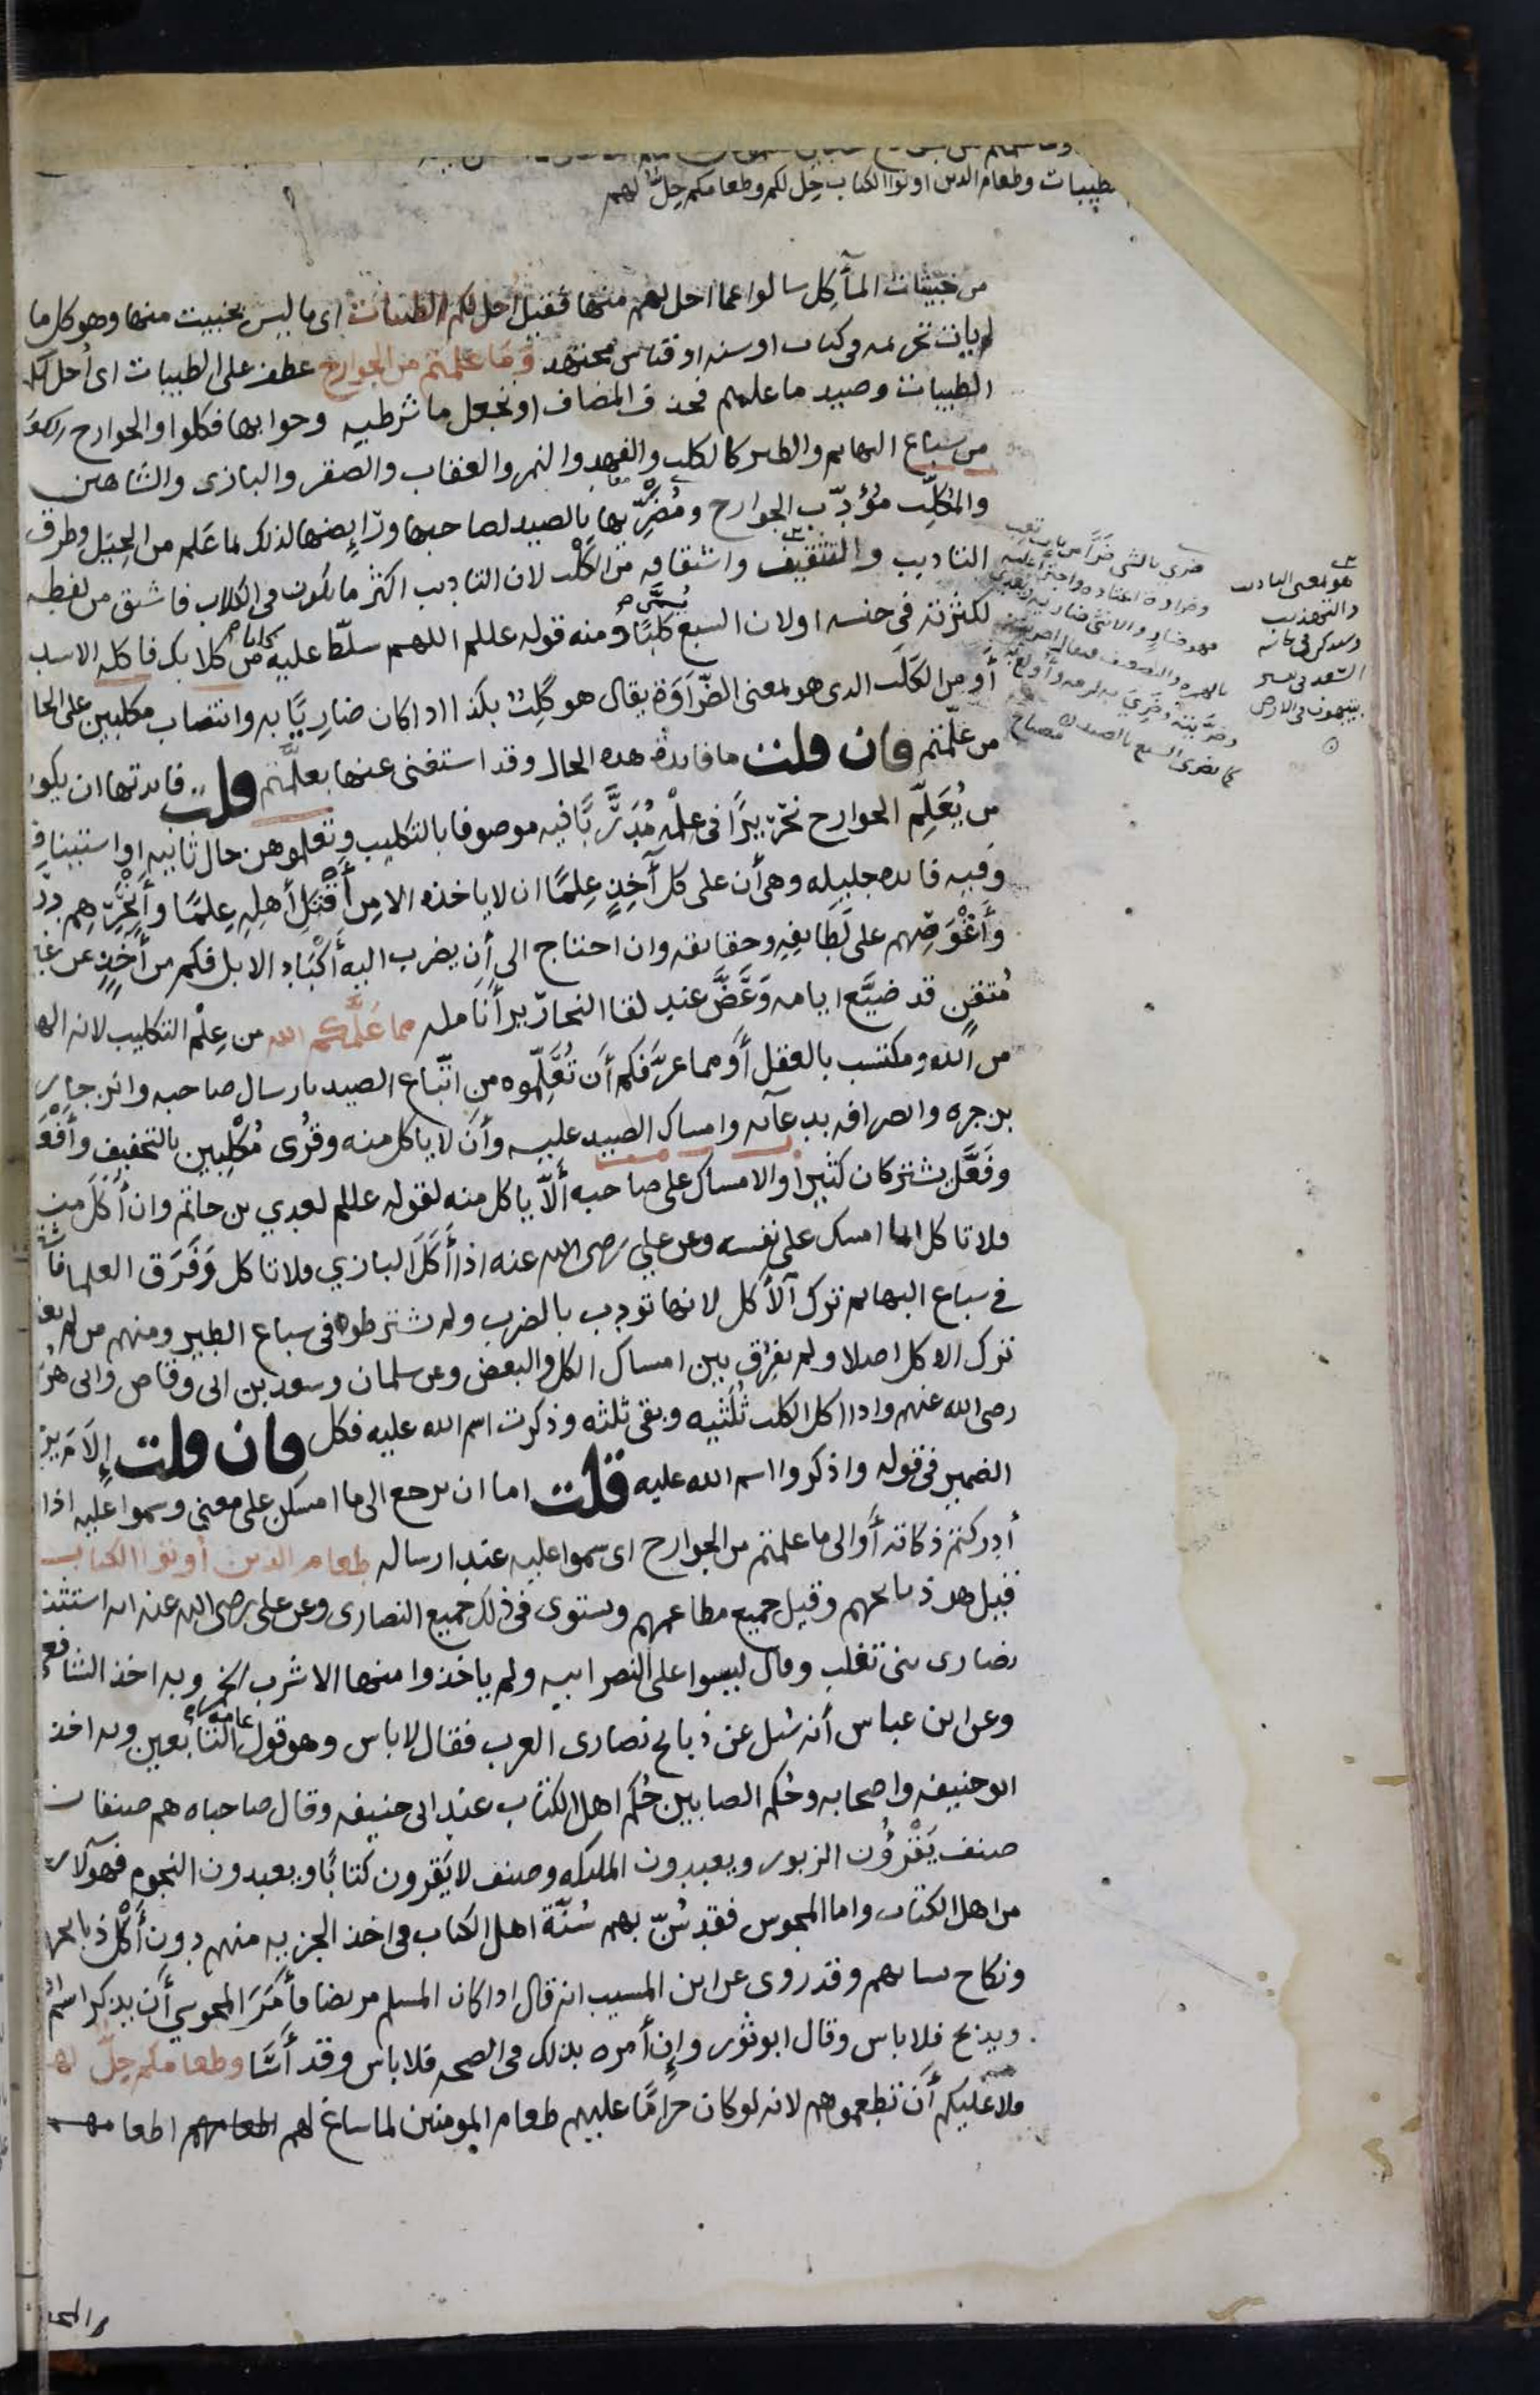 لطيبات وطعام الدين اوتوا الكتاب حِل لكم وطعامكم حِلٌّ لهم
من خبيثات المآكِل سالوا عما احل لهم منها فقيل احل لكم الطيبات اى ما ليس بخبيث منها وهو كل ما
لم يات تحريمه فى كتاب او سنه او قياس مجتهد وَمَا علمتم من الجوارح عطف على الطيبات اى اُحل لكم
الطيبات وصيد ما علمتم فحذف المضاف او تجعل ما شرطيه وجوابها فكلوا والجوارح الكواسب
من سباع البهايم والطير كالكلب والفهد والنمر والعقاب والصقر والبازى والشاهين
والمُكلِّب مُؤدِّب الجوارح ومُضَرِّيها بالصيد لصاحبها ورَايضها لذلك بما عَلم من الحِيَل وطرق
التاديب والتثقيف واشتقاقه من الكَلْب لان التاديب اكثر ما يكون فى الكلاب فاشتق من لفظه
لكثرته فى جنسه او لان السبع يُسَمَّى كلبًا ومنه قوله عللم اللهم سلّط عليه كلبا من كلابك فاكله الاسد
أو من الكَلَب الدى هو بمعنى الضّرَاوَة يقال هو كَلِبٌ بكذا ادا كان ضارِيًا به وانتصاب مكلبين على الحال
من علّمتم فان قلت ما فايدة هده الحال وقد استغنى عنها بعلَّمتم قلت فايدتها ان يكون
من يُعَلِّم الجوارح نحْرِيرًا فى عِلْمه مُدَرَّبًا فيه موصوفا بالتكليب وتعلمونهن حال ثانيه او استيناف
وفيه فايده جليله وهى أن على كل آخِذٍ عِلمًا ان لا ياخذه الا من أَقْتَلِ أهله عِلمًا وأنْحَرِهم دِرَ
وأَغْوَصِهم على لَطَايفِهِ وحقايقه وان احتاج الى أن يضرب اليه أَكْبَاد الابل فكم من أَخِذٍ عن غير
مُتقنٍ قد ضيَّع ايامه وَعَضَّ عند لقا النحارير أنامله مما عَلَّمكم الله من عِلْم التكليب لانه الها
من الله ومكتسب بالعقل أو مما عرَّفكم أن تُعَلِّموه من اتِّباع الصيد بارسال صاحبه وانزجاره
بزجره وانصرافه بدعآئه وامساك الصيد عليه وأن لا ياكل منه وقُرى مُكْلِبين بالتخفيف وأَفْعَل
وفَعَّل يشتركان كثيرا والامساك على صاحبه ألَّا ياكل منه لقوله عللم لعدي بن حاتم وان أَكَلَ منه
فلا تاكل انما امسك على نفسه وعن علي رضى الله عنه اذا أَكَلَ البازي فلا تاكل وَفَرَّق العلما فاشتر
فى سباع البهايم ترك الأكل لانها تودب بالضرب ولم يشترطوه فى سباع الطير ومنهم من لم يعتبر
ترك الاكل اصلا ولم يفرق بين امساك الكل والبعض وعن سلمان وسعد بن ابى وقاص وابى هُرَ
رضى الله عنهم وادا اكل الكلب ثُلُثَيه وبقى ثلثه وذكرت اسم الله عليه فكل فان قلت إلامَ يرجع
الضمير فى قوله واذكروا اسم الله عليه قلت اما ان يرجع الى ما امسكن على معنى وسموا عليه اذا
أدركتم ذكاته أو الى ما علمتم من الجوارح اى سموا عليه عند ارساله طعام الدين أوتوا الكتاب
قيل هو ذبايحهم وقيل جميع مطاعمهم ويستوى فى ذلك جميع النصارى وعن على رضى الله عنه انه استثنى
نصارى بنى تغلب وقال ليسوا على النصرانيه ولم ياخذوا منها الا شرب الخمر وبه اخذ الشافعى
وعن ابن عباس أنه سُئل عن ذبايح نصارى العرب فقال لا باس وهو قول عامه التابعين وبه اخذ
ابو حنيفه واصحابه وحُكم الصابيين حُكم اهل الكتاب عند ابى حنيفه وقال صاحباه هم صنفان
صنف يَقْرَؤُن الزبور ويعبدون الملايكه وصنف لا يَقرون كتابًا ويعبدون النجوم فهولآء ليسوا
من اهل الكتاب واما المجوس فقد سُنّ بهم سُنّة اهل الكتاب فى اخذ الجزيه منهم دون أَكْل ذبايحهم
ونكاح نسايهم وقد روى عن ابن المسيب انه قال ادا كان المسلم مريضا فأَمَرَ المجوسي أن يذكر اسم الله
ويذبح فلا باس وقال ابو ثور وإن أمره بذلك فى الصحه فلا باس وقد أَسَا وطعامكم حِلّ لهم
فلا عليكم أن تطعموهم لانه لو كان حرامًا عليهم طعام المومنين لما ساغ لهم اطعامهم
ضرى بالشى ضَرًى من باب تعب
وضراوة اعتاده واجترأ عليه
فهو ضارٍ والانثى ضاريه
كما يضرى السبع بالصيد مصباح
هو بمعنى التاديب
والتهذيب
يتيهون فى الارض